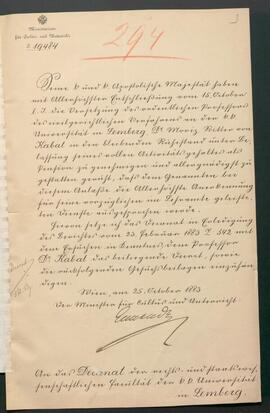 Ministerium
für Cultus und Unterricht.
Z. 19484
294
Seine k. und k. Apostolische Majestät haben
mit Allerhöchster Entschließung vom 15. October
l. J. die Versetzung des ordentlichen Professors
des zivilgerichtlichen Verfahrens an der k. k.
Universität in Lemberg, Dr Moriz Ritter von
Kabat in den bleibenden Ruhestand unter Be-
lassung seines vollen Activitätsgehaltes als
Pension zu genehmigen und allergnädigst zu
gestatten geruht, daß dem Genannten bei
diesem Anlaße die Allerhöchste Anerkennung
für seine vorzüglichen im Lehramte geleiste-
ten Dienste ausgesprochen werde.
Hievon setze ich das Decanat in Erledigung
des Berichtes vom 23. Februar 1883 Z 542 mit
dem Ersuchen in Kenntnis, dem Professor
Dr Kabat das beiliegende Decret, sowie
die rückfolgenden Gesuchsbeilagen einzuhän-
digen.
Wien, am 25. October 1883
Der Minister für Cultus und Unterricht:
An das Decanat der rechts- und staatswis-
senschaftlichen Facultät der k. k. Universität
in Lemberg.